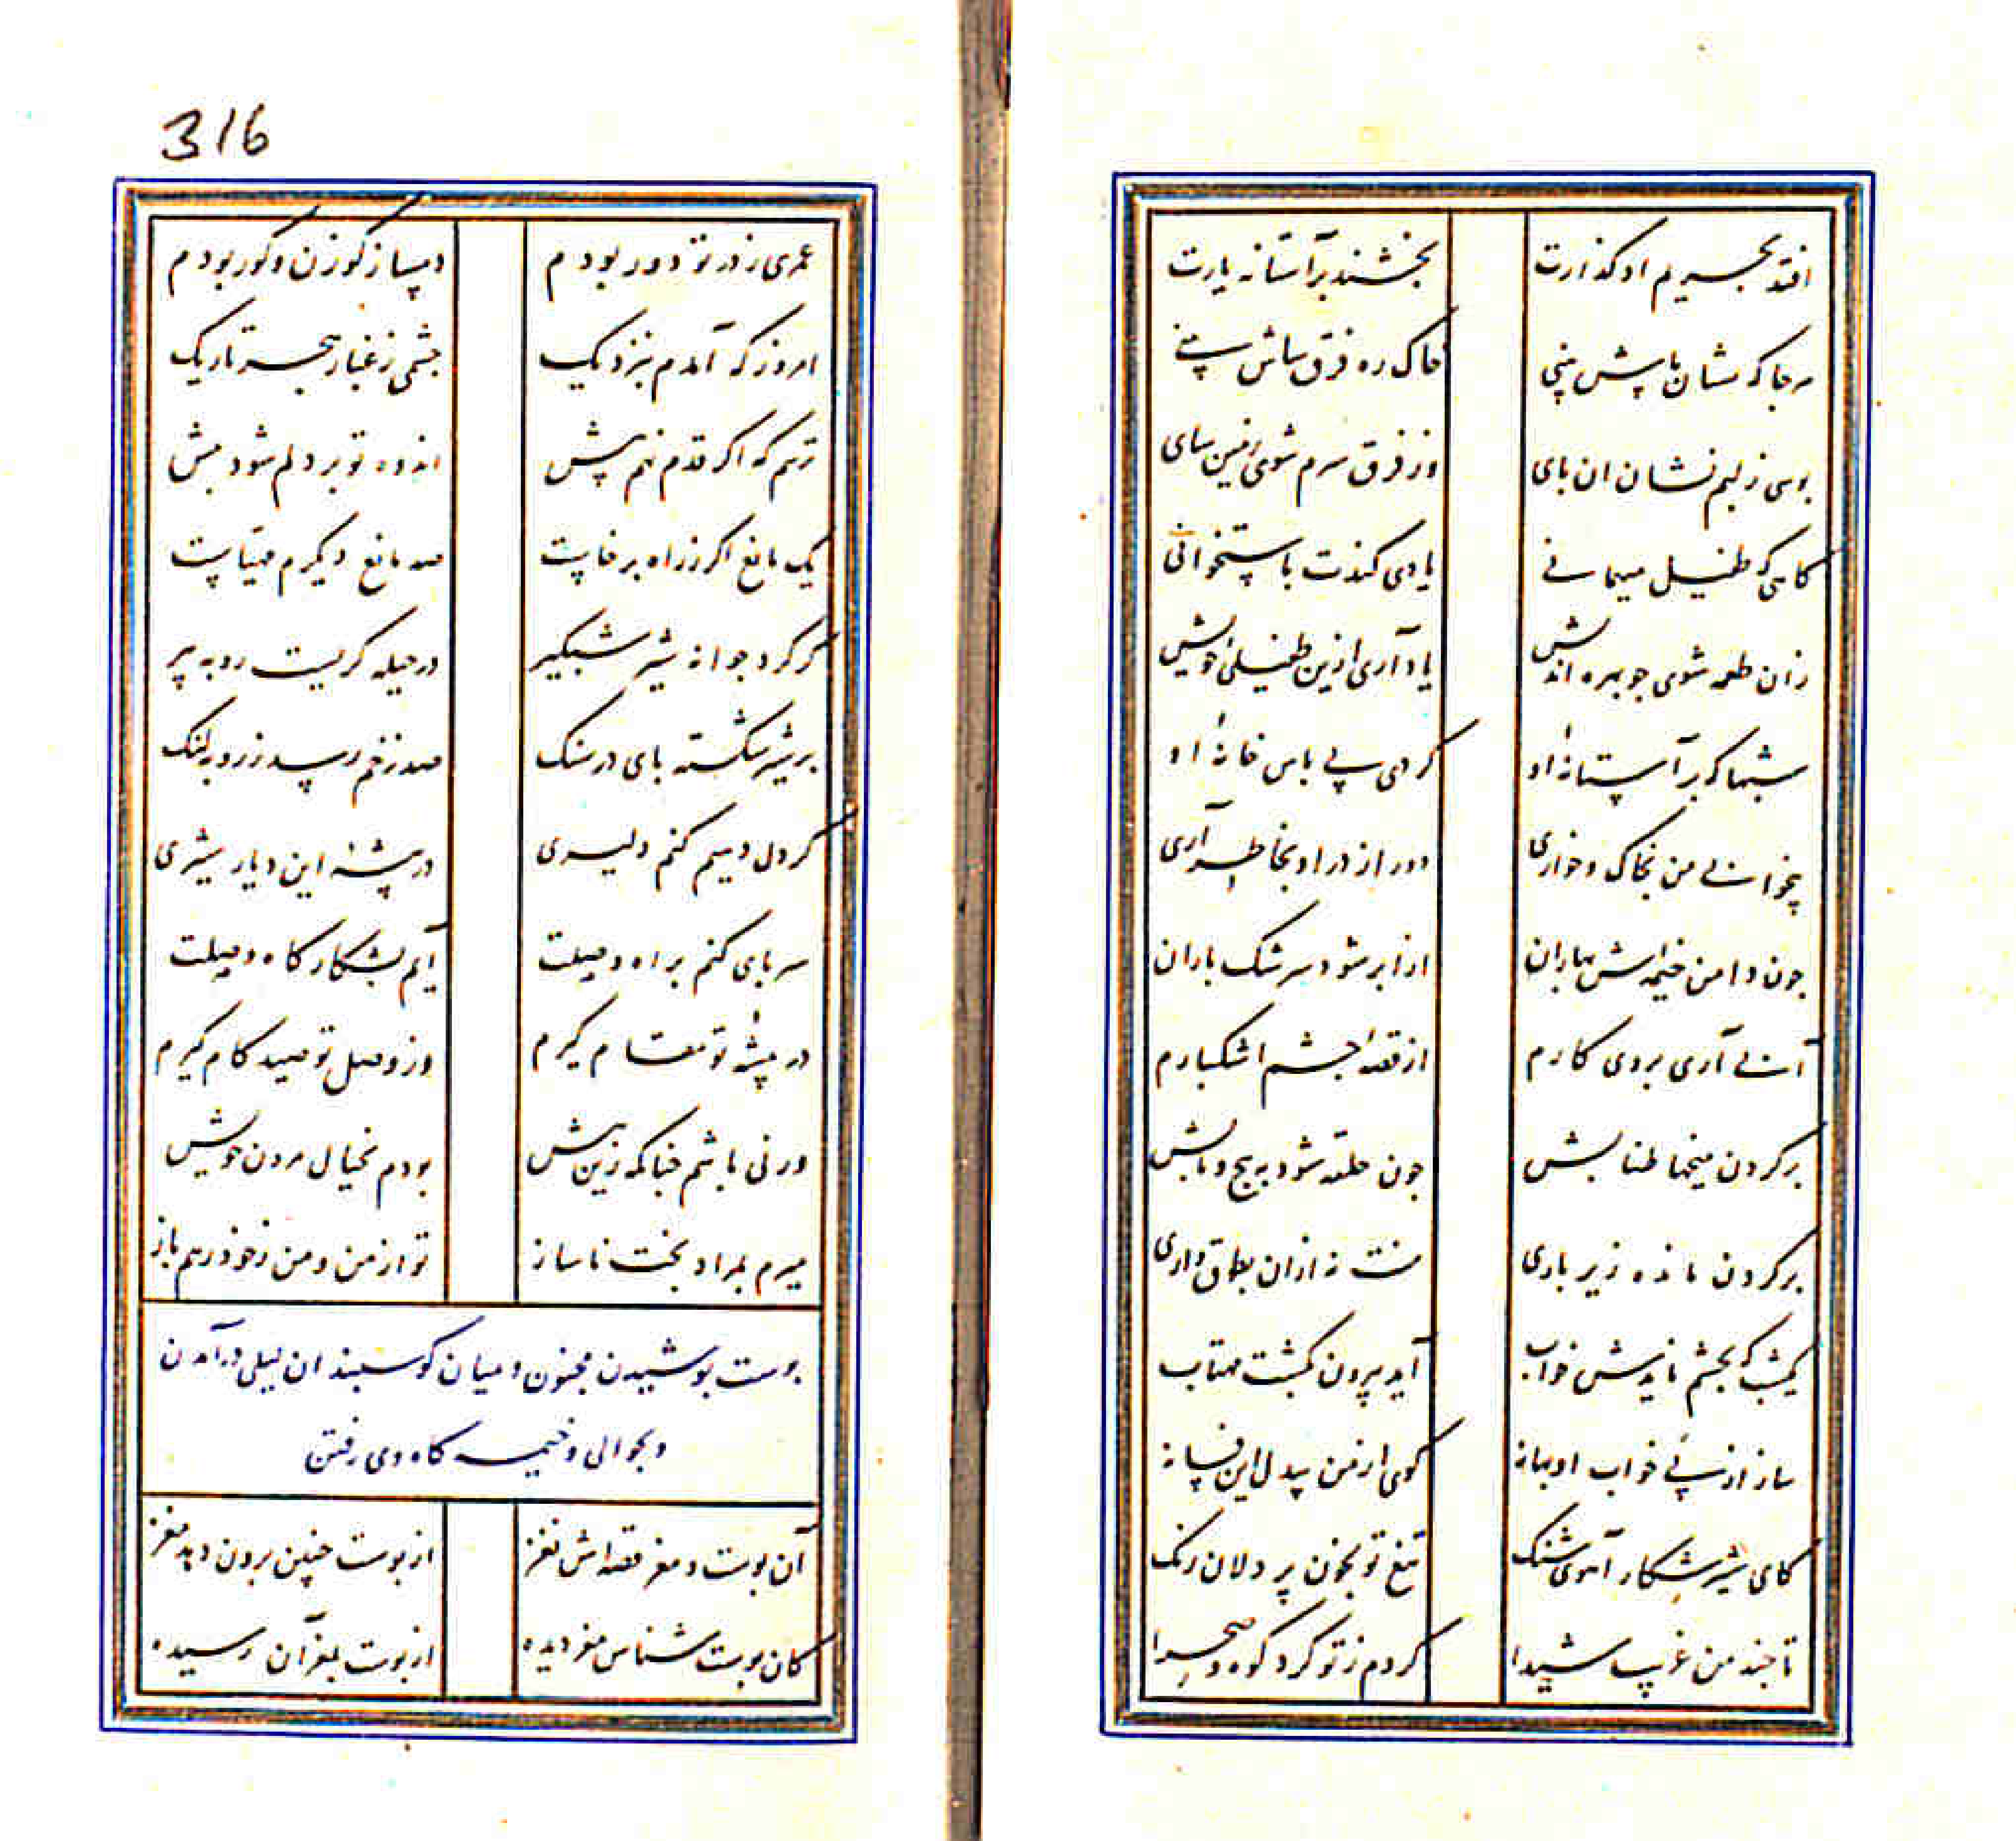 افتد بحریم او گذارت
بخشند بر آستانه یارت
هر جا که نشان پاش بینی
خاک ره فرق ساش بینی
بوسی ز لبم نشان آن پای
وز فرق سرم شوی زمین سای
گاهی که طفیل میهمانی
یادی کندت باستخوانی
زان طعمه شوی چو بهره اندیش
یاد آری ازین طفیلی خویش
شبها که بر آستانهٔ او
گردی پی پاس خانهٔ او
بیخوابی من بخاک و خواری
دور از در او بخاطر آری
چون دامن خیمه‌اش بهاران
از ابر شود سرشک باران
آبی آری بروی کارم
از قصهٔ چشم اشکبارم
بر گردن میخها طنابش
چون حلقه شود به پیچ و تابش
بر گردن مانده زیر باری
منت نه ازان بطوق داری
یکشب که بچشم نایدش خواب
آید بیرون بگشت مهتاب
ساز از پی خواب او بهانه
گوی از من بیدل این فسانه
کای شیر شکار آهوی شنگ
تیغ تو بخون پر دلان رنگ
تا چند من غریب شیدا
گردم ز تو گرد کوه و صحرا
316
عمری ز در تو دور بودم
دمساز گوزن و گور بودم
امروز که آمدم بنزدیک
چشمی ز غبار هجر تاریک
ترسم که اگر قدم نهم پیش
اندوه تو بر دلم شود بیش
یک مانع اگر ز راه برخاست
صد مانع دیگرم مهیاست
گر گرد جوانه شیر شبگیر
در حیله گریست روبه پیر
بر شیر شکسته پای در سنگ
صد زخم رسد ز روبه لنگ
گر دل دهیم کنم دلیری
در بیشهٔ این دیار شیری
سر پای کنم براه وصلت
آیم بشکار گاه وصلت
در بیشهٔ تو مقام گیرم
وز وصل تو صید کام گیرم
ورنی باشم چنانکه زین پیش
بودم بخیال مردن خویش
میرم بمراد بخت ناساز
تو از من و من ز خود رهم باز
پوست پوشیدن مجنون و میان گوسبندان لیلی در آمدن
و بحوالی خیمه گاه وی رفتن
آن پوست و مغز قصه‌اش نغز
از پوست چنین برون دهد مغز
کان پوست شناس مغز دیده
از پوست بمغز آن رسیده